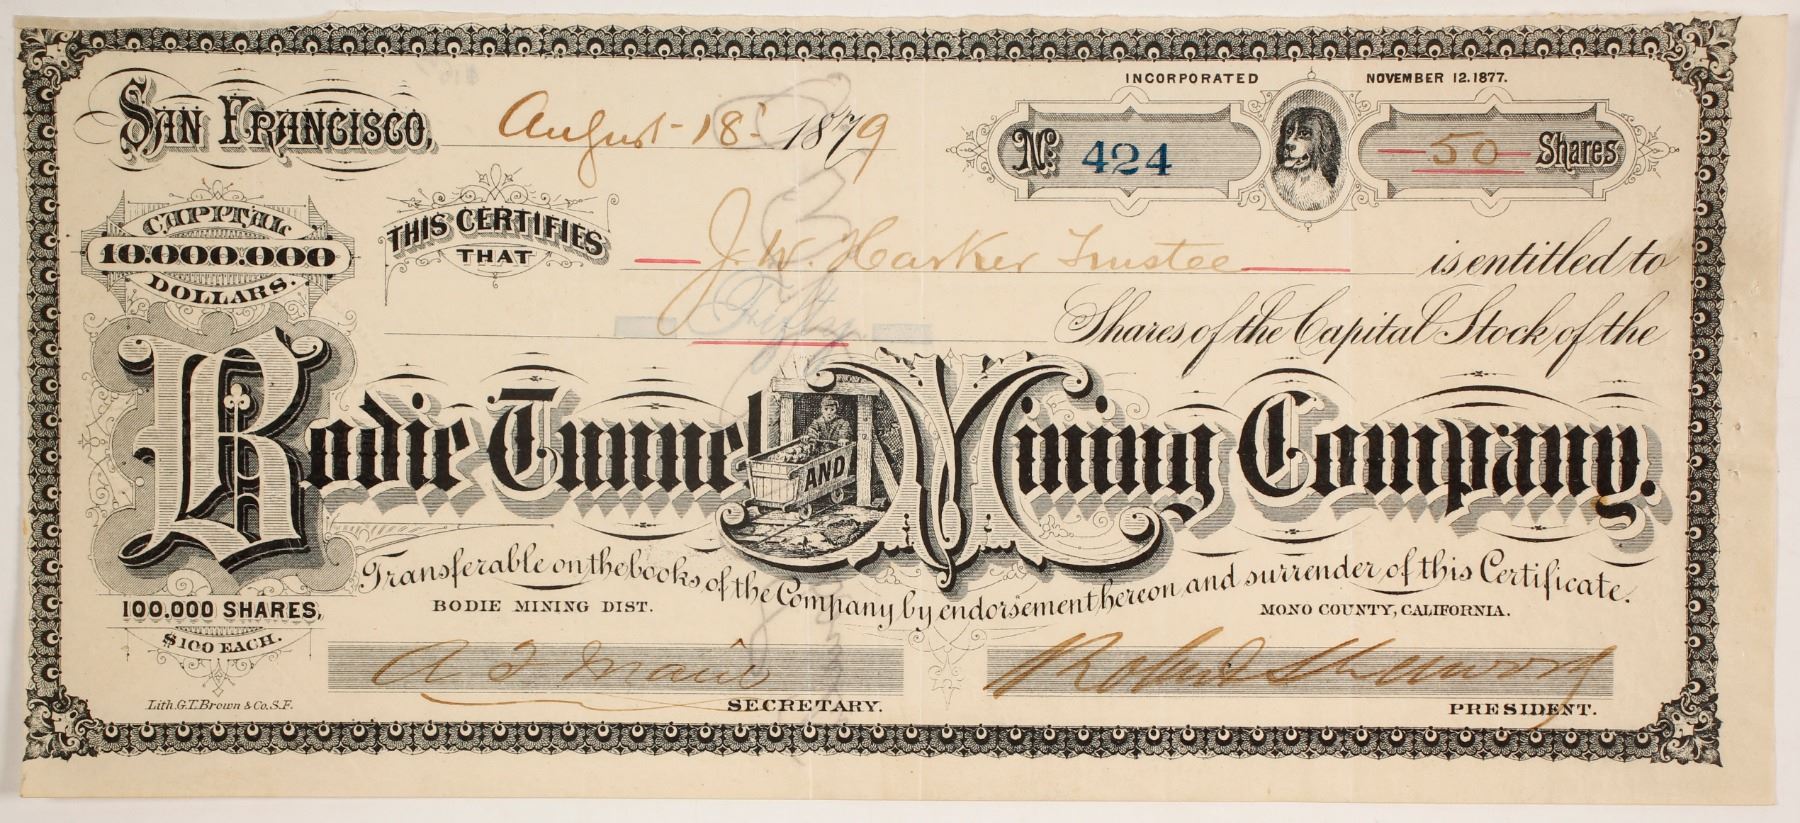 INCORPORATED NOVEMBER 12.1877.
SAN FRANCISCO, August 18 1879
No. 424 50 Shares
CAPITAL 10.000.000 DOLLARS.
THIS CERTIFIES THAT J. W. Harker Trustee is entitled to
Fifty Shares of the Capital Stock of the
Bodie Tunnel AND Mining Company.
Transferable on the books of the Company by endorsement hereon and surrender of this Certificate.
100.000 SHARES, BODIE MINING DIST. MONO COUNTY, CALIFORNIA.
$100 EACH.
Robert Sherwood
Lith. G.T. Brown & Co. S.F. SECRETARY. PRESIDENT.